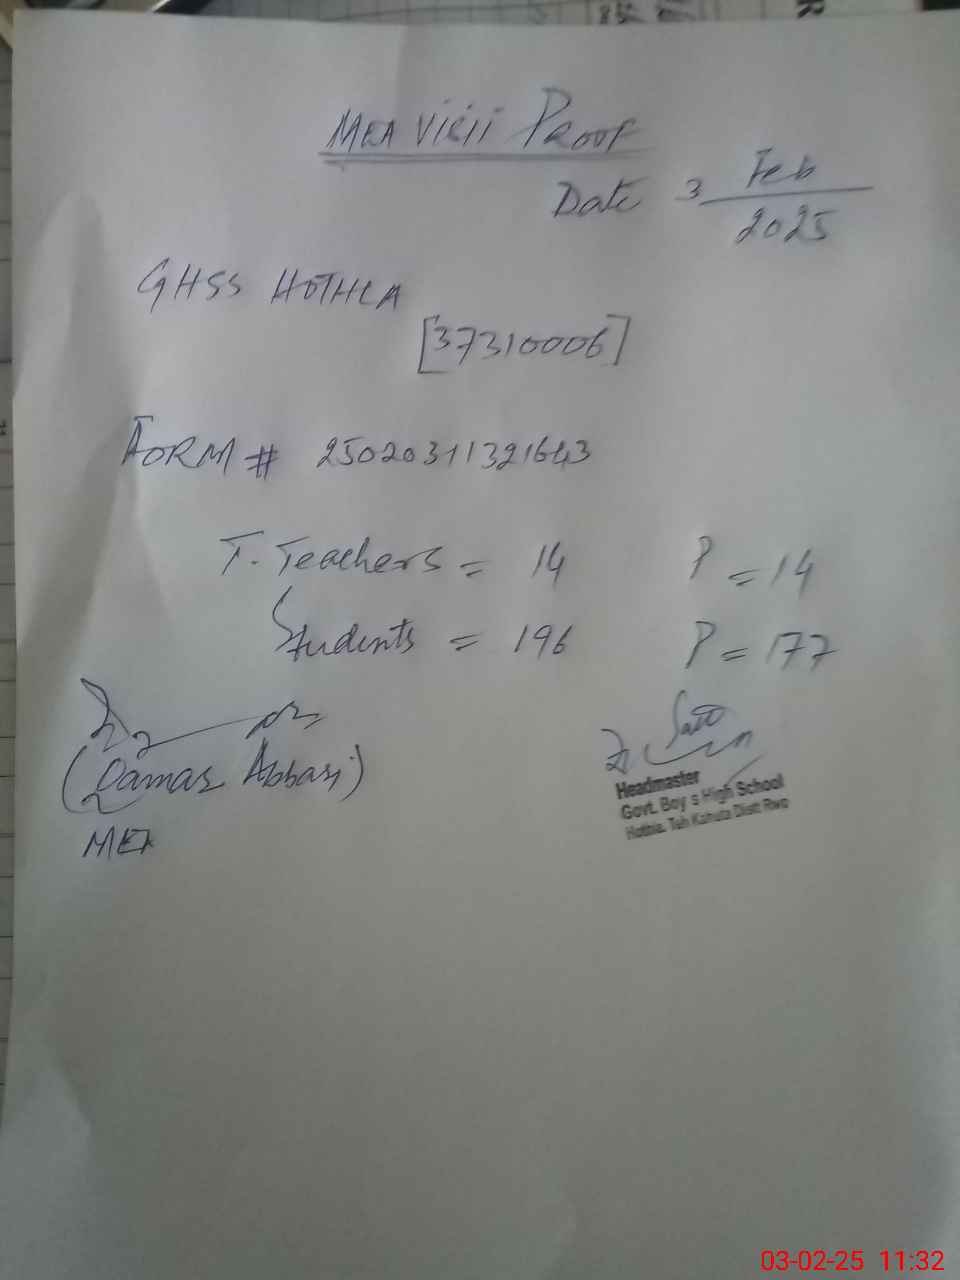 MEA Visit Proof
Date 3 Feb
2025
GHSS HOTHLA
[37310006]
FORM # 25020311321643
T. Teachers = 14 P = 14
Students = 196 P = 177
(Qamar Abbasi)
MEA
Headmaster
Govt. Boy s High School
Hothla. Teh Kahuta Distt Rwp
03-02-25 11:32